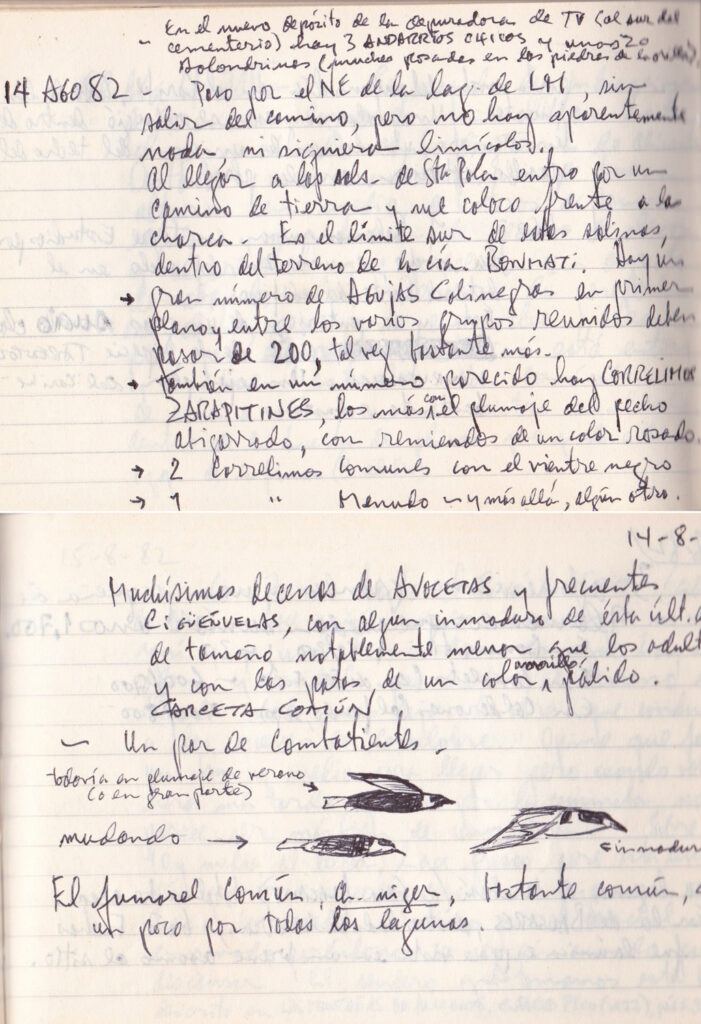 - En el nuevo depósito de la depuradora de TV (al sur del
cementerio) hay 3 ANDARRÍOS CHICOS y unas 20
Golondrinas (muchas posadas en las piedras de la orilla).
14 AGO 82 - Paso por el NE de la lag. de LM, sin
salir del camino, pero no hay aparentemente
nada, ni siquiera limícolos.
Al llegar a las sals. de Sta Pola entro por un
camino de tierra y me coloco frente a la
charca. Es el límite sur de estas salinas,
dentro del terreno de la cia. BONMATÍ. Hay un
→ gran número de AGUJAS Colinegras en primer
plano y entre los varios grupos reunidos deben
pasar de 200, tal vez bastante más.
→ También en un número parecido hay CORRELIMOS
ZARAPITINES, los más con el plumaje del pecho
abigarrado, con remiendos de un color rosado.
→ 2 Correlimos Comunes con el vientre negro
→ 1 " Menudo - y más allá, algún otro.
14-8-
Muchísimas decenas de AVOCETAS y frecuentes
CIGÜEÑUELAS, con algún inmaduro de ésta últ.
de tamaño notablemente menor que los adult
y con las patas de un color amarillo pálido.
GARCETA COMÚN
- Un par de Combatientes.
todavía en plumaje de verano →
(o en gran parte)
mudando →
inmadur
El fumarel común, Ch. niger, bastante común,
un poco por todas las lagunas.